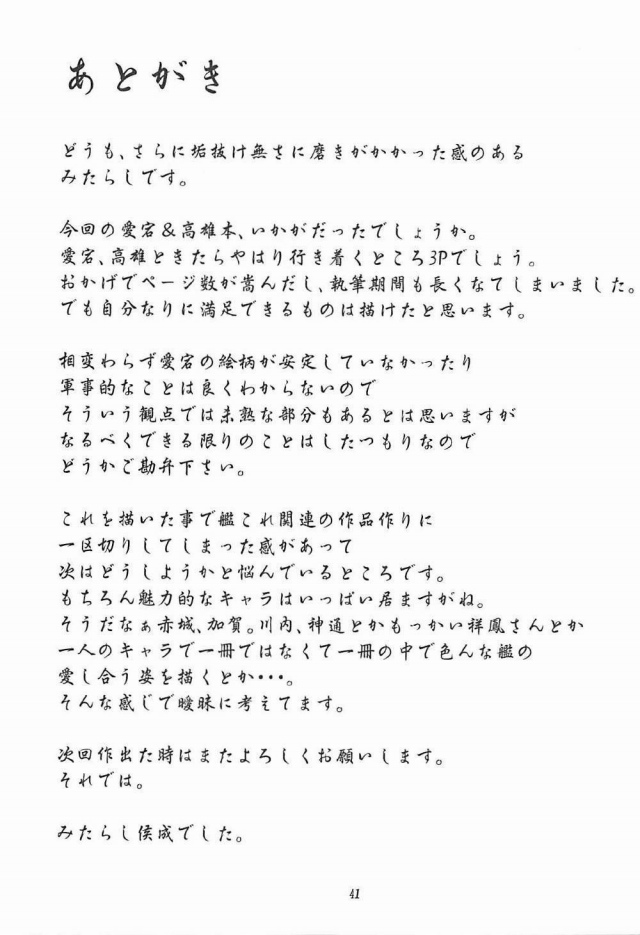 あとがき
どうも、さらに垢抜け無さに磨きがかかった感のある
みたらしです。
今回の愛宕＆高雄本、いかがだったでしょうか。
愛宕、高雄ときたらやはり行き着くところ3Pでしょう。
おかげでページ数が嵩んだし、執筆期間も長くなてしまいました。
でも自分なりに満足できるものは描けたと思います。
相変わらず愛宕の絵柄が安定していなかったり
軍事的なことは良くわからないので
そういう観点では未熟な部分もあるとは思いますが
なるべくできる限りのことはしたつもりなので
どうかご勘弁下さい。
これを描いた事で艦これ関連の作品作りに
一区切りしてしまった感があって
次はどうしようかと悩んでいるところです。
もちろん魅力的なキャラはいっぱい居ますがね。
そうだなぁ赤城、加賀。川内、神通とかもっかい祥鳳さんとか
一人のキャラで一冊ではなくて一冊の中で色んな艦の
愛し合う姿を描くとか・・・。
そんな感じで曖昧に考えてます。
次回作出た時はまたよろしくお願いします。
それでは。
みたらし侯成でした。
41